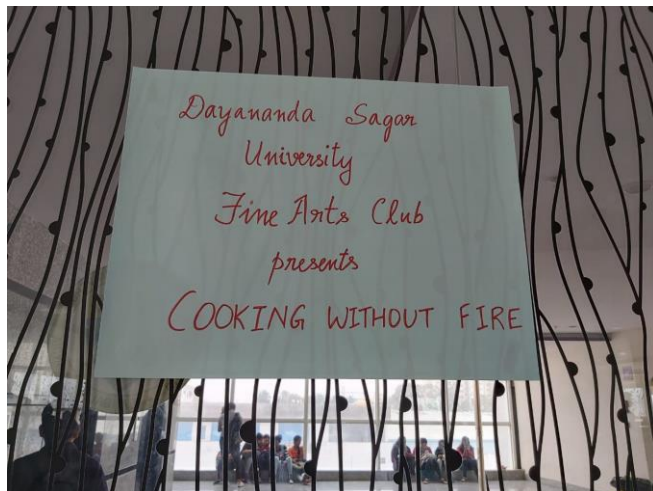 Dayananda Sagar
University
Fine Arts Club
presents
COOKING WITHOUT FIRE